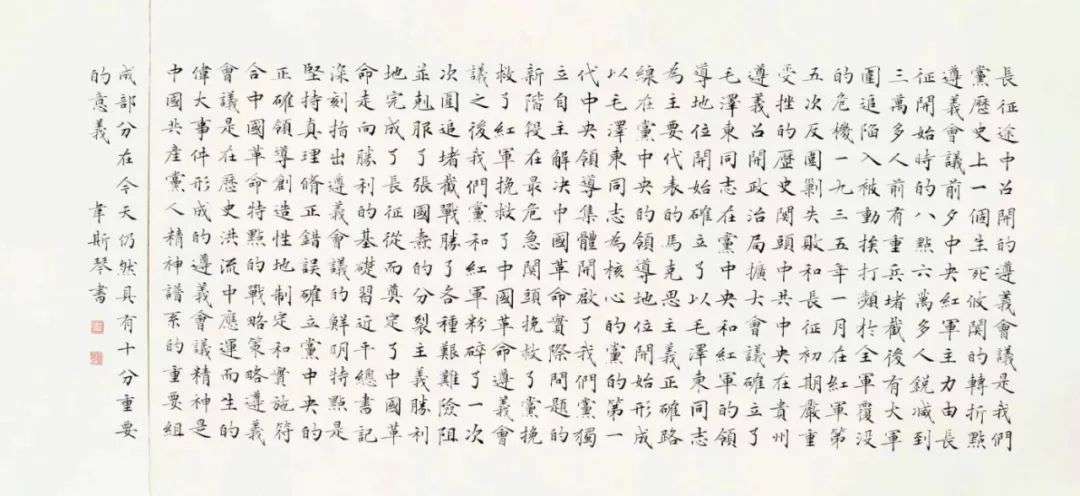 長征途中召開的遵義會議是我們
黨歷史上一個生死攸関的轉折點
遵義會議前夕中央紅軍主力由長
征開始時的八點六萬多人銳減到
三萬多人前有重兵堵截後有大軍
圍追陷入被動挨打頻於全軍覆没
的危機一九三五年一月在紅軍第
五次反圍剿失敗和長征初期嚴重
受挫的歷史関頭中共中央在貴州
遵義召開政治局擴大會議確立了
毛澤東同志在黨中央和紅軍的領
導地位開始確立了以毛澤東同志
為主要代表的馬克思主義正確路
線在黨中央的領導地位開始形成
以毛澤東同志為核心的黨的第一
代中央領導集體開啟了我們黨獨
立自主解決中國革命實際問題的
新階段在最危急関頭挽救了黨挽
救了紅軍挽救了中國革命遵義會
議之後我們黨和紅軍粉碎了一次
次圍追堵截戰勝了各種艱難險阻
並剋服了張國燾的分裂主義勝利
地完成了長征從而奠定了中國革
命走向勝利的基礎習近平總書記
深刻指出遵義會議的鮮明特點是
堅持真理脩正錯誤確立黨中央的
正確領導創造性地制定和實施符
合中國革命特點的戰略策略遵義
會議是在歷史洪流中應運而生的
偉大事件形成的遵義會議精神是
中國共産黨人精神譜系的重要組
成部分在今天仍然具有十分重要
的意義 韋斯琴書